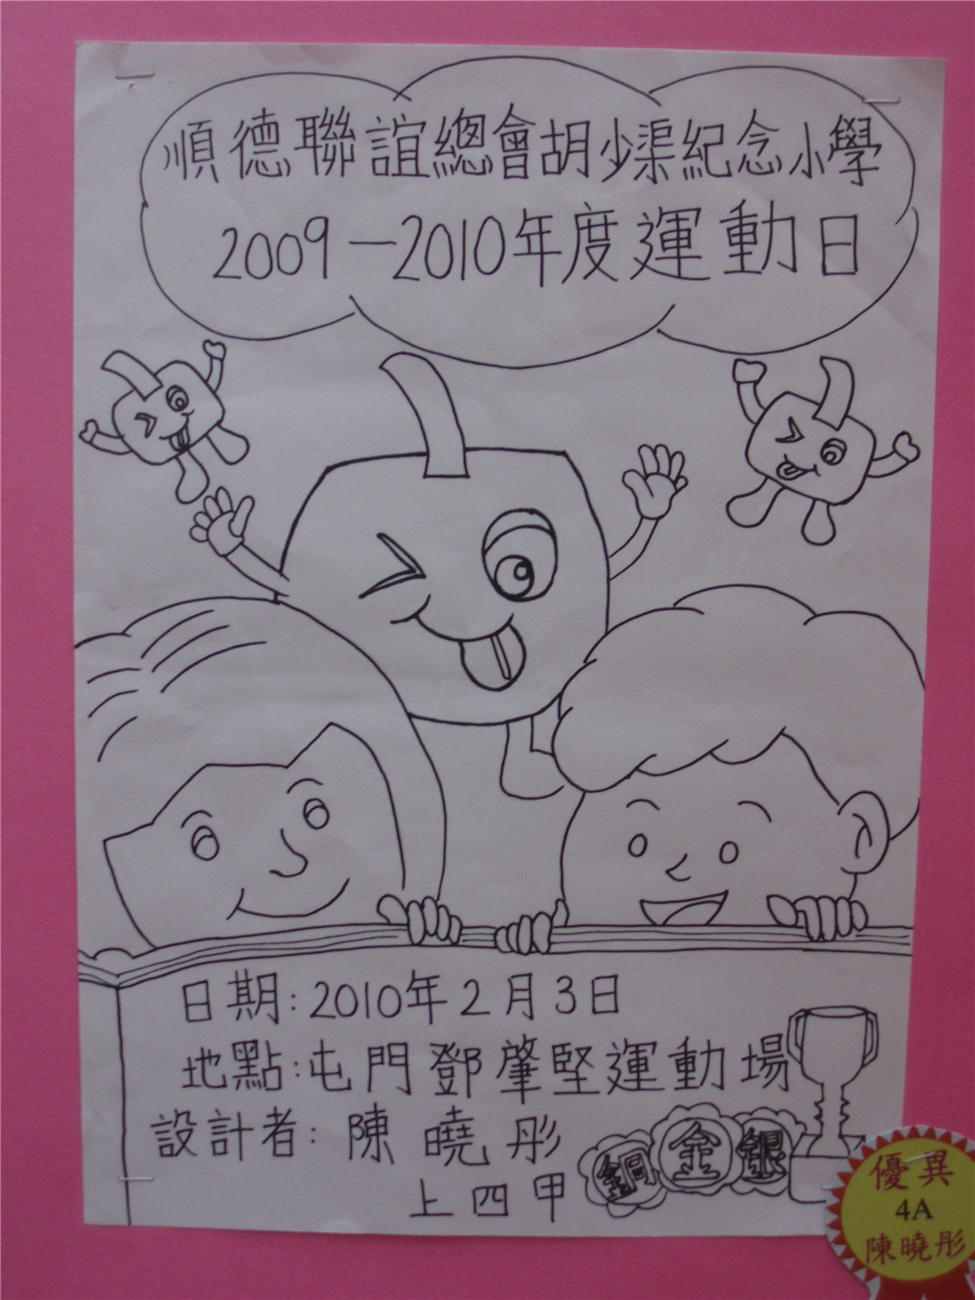 順德聯誼總會胡少渠紀念小學
2009－2010年度運動日
日期:2010年2月3日
地點:屯門鄧肇堅運動場
設計者:陳曉彤
上四甲
銅 金 銀
優異
4A
陳曉彤